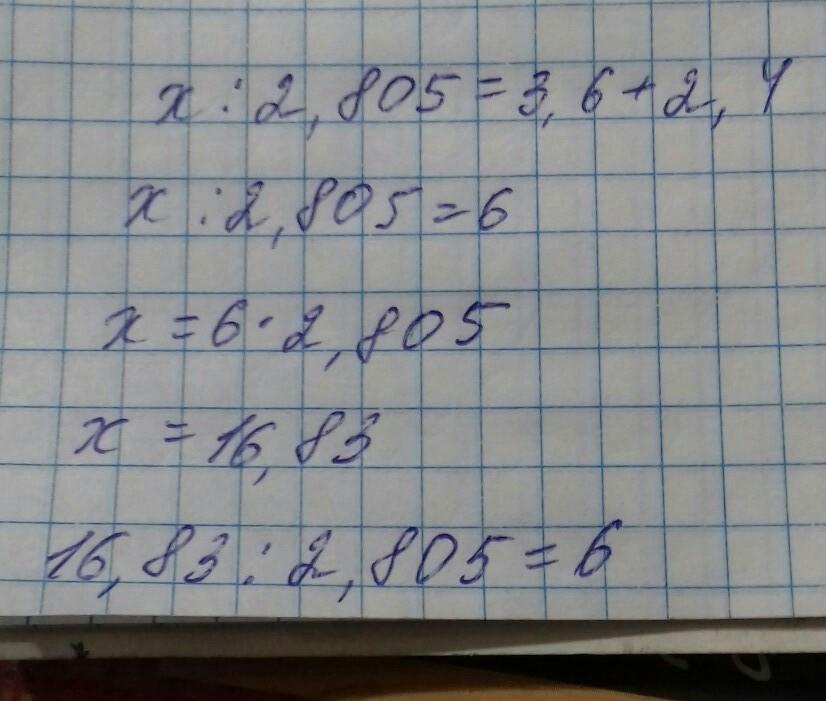 x : 2,805 = 3,6 + 2,4
x : 2,805 = 6
x = 6 · 2,805
x = 16,83
16,83 : 2,805 = 6